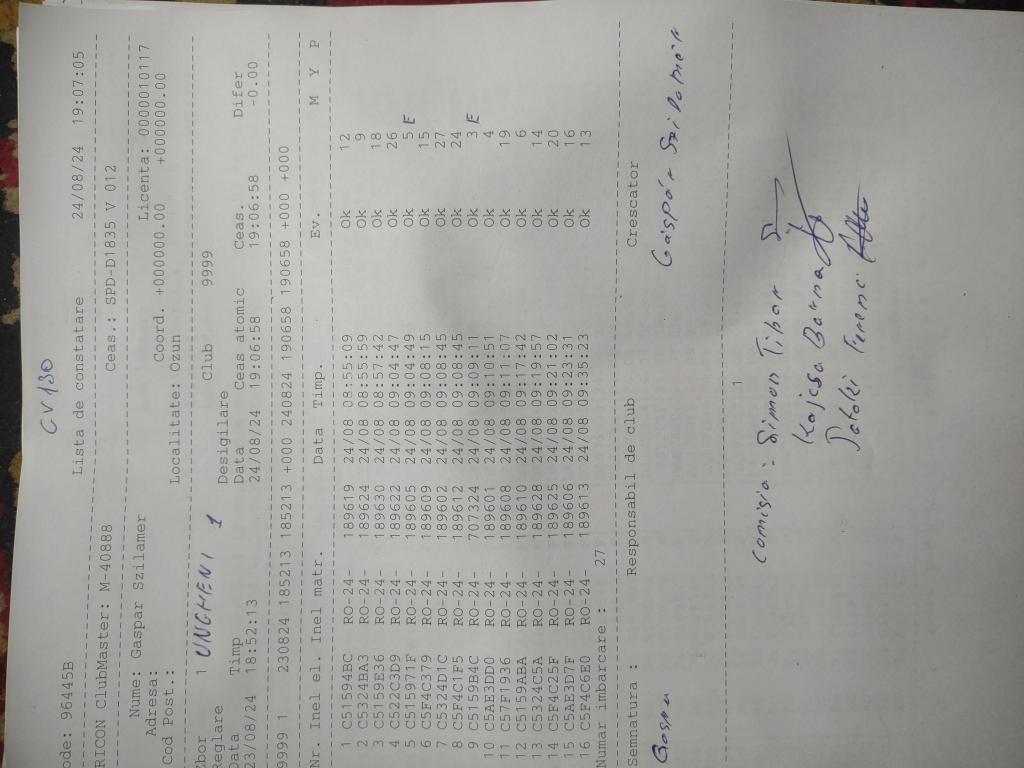 CV 130
ode: 96445B Lista de constatare 24/08/24 19:07:05
RICON ClubMaster: M-40888 Ceas.: SPD-D1835 V 012
Nume: Gaspar Szilamer Licenta: 0000010117
Adresa: Coord. +000000.00 +000000.00
Cod Post.: Localitate: Ozun
Zbor 1 UNGHENI 1 Club 9999
Reglare Desigilare
Data Timp Data Ceas atomic Ceas. Difer
23/08/24 18:52:13 24/08/24 19:06:58 19:06:58 -0.00
9999 1 230824 185213 185213 +000 240824 190658 190658 +000 +000
Nr. Inel el. Inel matr. Data Timp. Ev. M Y P
1 C51594BC RO-24- 189619 24/08 08:55:09 Ok 12
2 C5324BA3 RO-24- 189624 24/08 08:55:59 Ok 9
3 C5159E36 RO-24- 189630 24/08 08:57:42 Ok 18
4 C522C3D9 RO-24- 189622 24/08 09:04:47 Ok 26
5 C515971F RO-24- 189605 24/08 09:04:49 Ok 5 E
6 C5F4C379 RO-24- 189609 24/08 09:08:15 Ok 15
7 C5324D1C RO-24- 189602 24/08 09:08:45 Ok 27
8 C5F4C1E5 RO-24- 189612 24/08 09:08:45 Ok 24
9 C5159B4C RO-24- 707324 24/08 09:09:11 Ok 3 E
10 C5AE3DD0 RO-24- 189601 24/08 09:10:51 Ok 4
11 C57F1936 RO-24- 189608 24/08 09:11:07 Ok 19
12 C5159ABA RO-24- 189610 24/08 09:17:42 Ok 6
13 C5324C5A RO-24- 189628 24/08 09:19:57 Ok 14
14 C5F4C25F RO-24- 189625 24/08 09:21:02 Ok 20
15 C5AE3D7F RO-24- 189606 24/08 09:23:31 Ok 16
16 C5F4C6E0 RO-24- 189613 24/08 09:35:23 Ok 13
Numar imbarcare : 27
Semnatura : Responsabil de club Crescator
Gáspár
1
Comisia: Simon Tibor
Kajcsa Barna
Ferenc